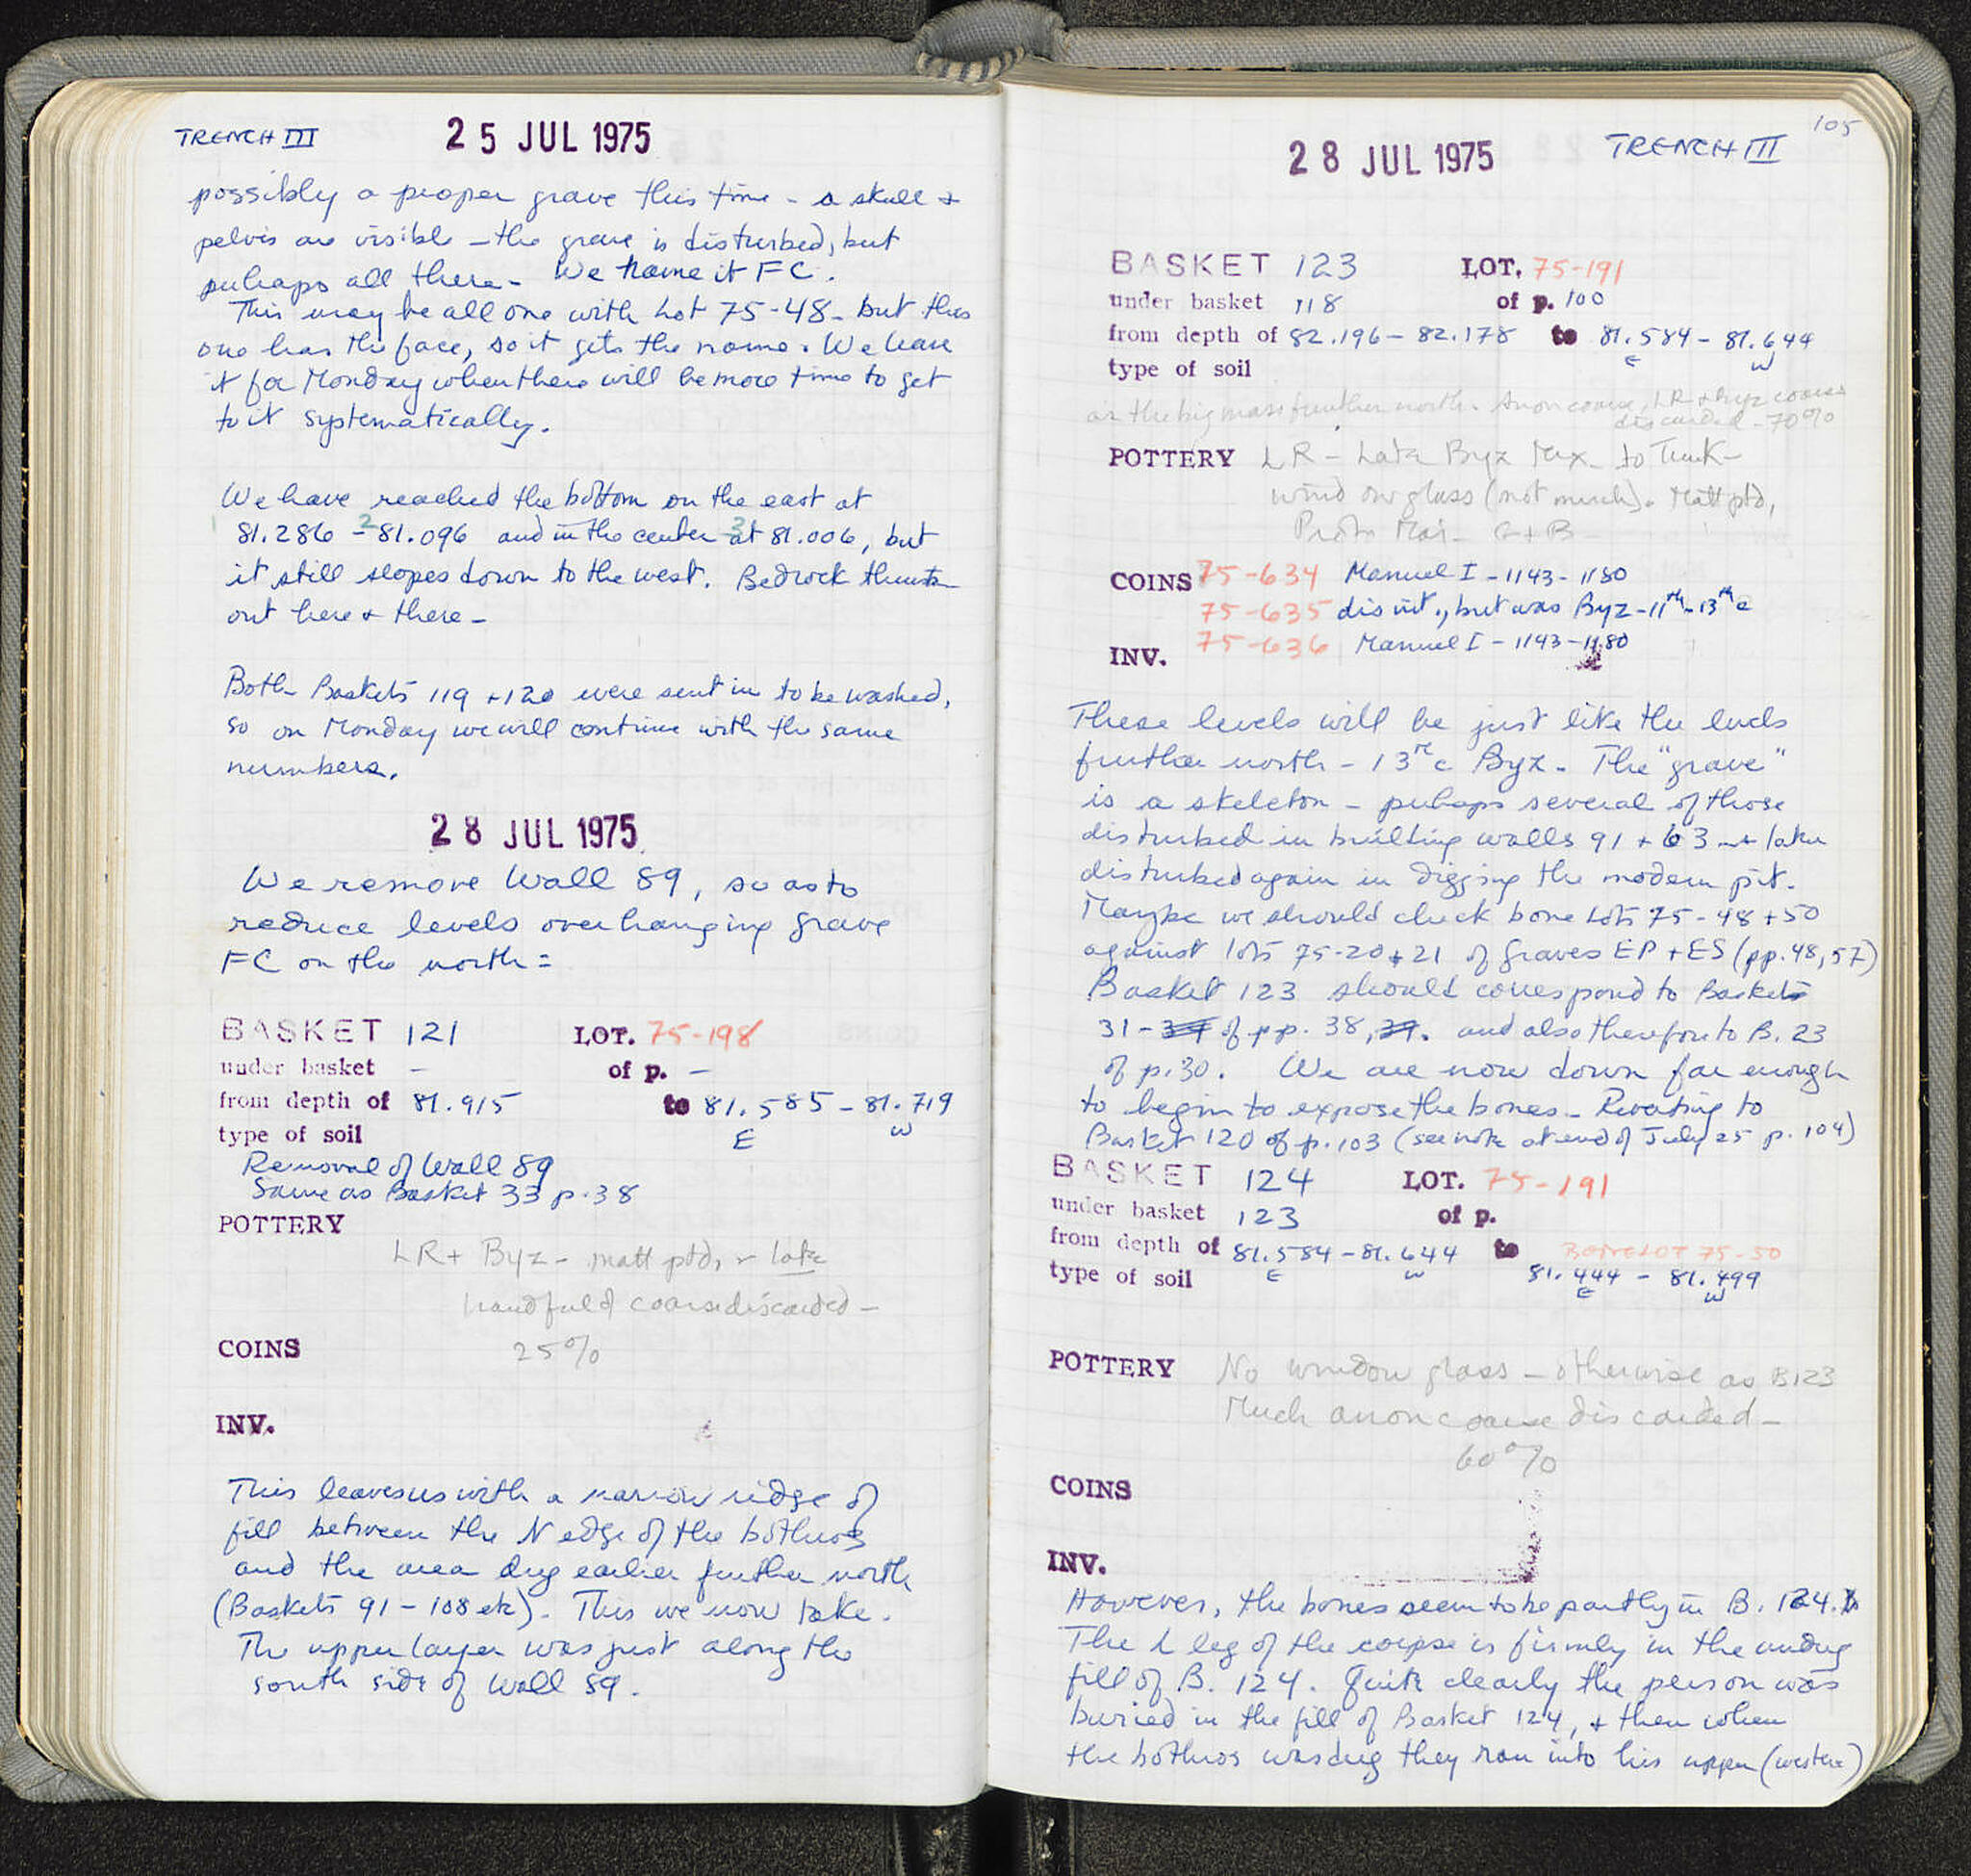 TRENCH III 25 JUL 1975
possibly a proper grave this time - a skull +
pelvis are visible - the grave is disturbed, but
perhaps all there - We name it FC.
This may be all one with Lot 75-48 - but this
one has the face, so it gets the name. We leave
it for Monday when there will be more time to get
to it systematically.
We have reached the bottom on the east at
1 81.286 - 2 81.096 and in the center 3 at 81.006, but
it still slopes down to the west. Bedrock thrusts
out here + there -
Both Baskets 119 + 120 were sent in to be washed,
so on Monday we will continue with the same
numbers.
28 JUL 1975
We remove Wall 89, so as to
reduce levels overhanging grave
FC on the north =
BASKET 121 LOT. 75-198
under basket - of p. -
from depth of 81.915 to 81.585 - 81.719
E W
type of soil
Removal of Wall 89
Same as Basket 33 p. 38
POTTERY
LR + Byz - matt ptd, + late
handful of coarse discarded -
COINS 25%
INV.
This leaves us with a narrow ridge of
fill between the N edge of the bothros
and the area dug earlier further north
(Baskets 91 - 108 etc). This we now take.
The upper layer was just along the
south side of Wall 89.
105
28 JUL 1975 TRENCH III
BASKET 123 LOT. 75-191
under basket 118 of p. 100
from depth of 82.196 - 82.178 to 81.584 - 81.644
E W
type of soil
as the big mass further north. Anon coarse, LR + Byz coarse
discarded - 70%
POTTERY LR - Late Byz Mix - to Turk -
window glass (not much). Matt ptd,
Proto Mai - G + B -
COINS 75-634 Manuel I - 1143 - 1180
75-635 disint., but was Byz - 11th - 13th c
75-636 Manuel I - 1143 - 1180
INV.
These levels will be just like the levels
further north - 13th c Byz. The "grave"
is a skeleton - perhaps several of those
disturbed in building walls 91 + 63 + later
disturbed again in digging the modern pit.
Maybe we should check bone Lots 75-48 + 50
against lots 75-20 + 21 of Graves EP + ES (pp. 48, 57)
Basket 123 should correspond to Baskets
31 - 34 of pp. 38, 39. and also therefore to B. 23
of p. 30. We are now down far enough
to begin to expose the bones - Reverting to
Basket 120 of p. 103 (see note at end of July 25 p. 104)
BASKET 124 LOT. 75-191
under basket 123 of p.
from depth of 81.584 - 81.644 to BONE LOT 75-50
E W
type of soil 81.444 - 81.499
E W
POTTERY No window glass - otherwise as B123
Much anon coarse discarded -
60%
COINS
INV.
However, the bones seem to be partly in B. 124.
The L leg of the corpse is firmly in the undug
fill of B. 124. Quite clearly the person was
buried in the fill of Basket 124, + then when
the bothros was dug they ran into his upper (western)